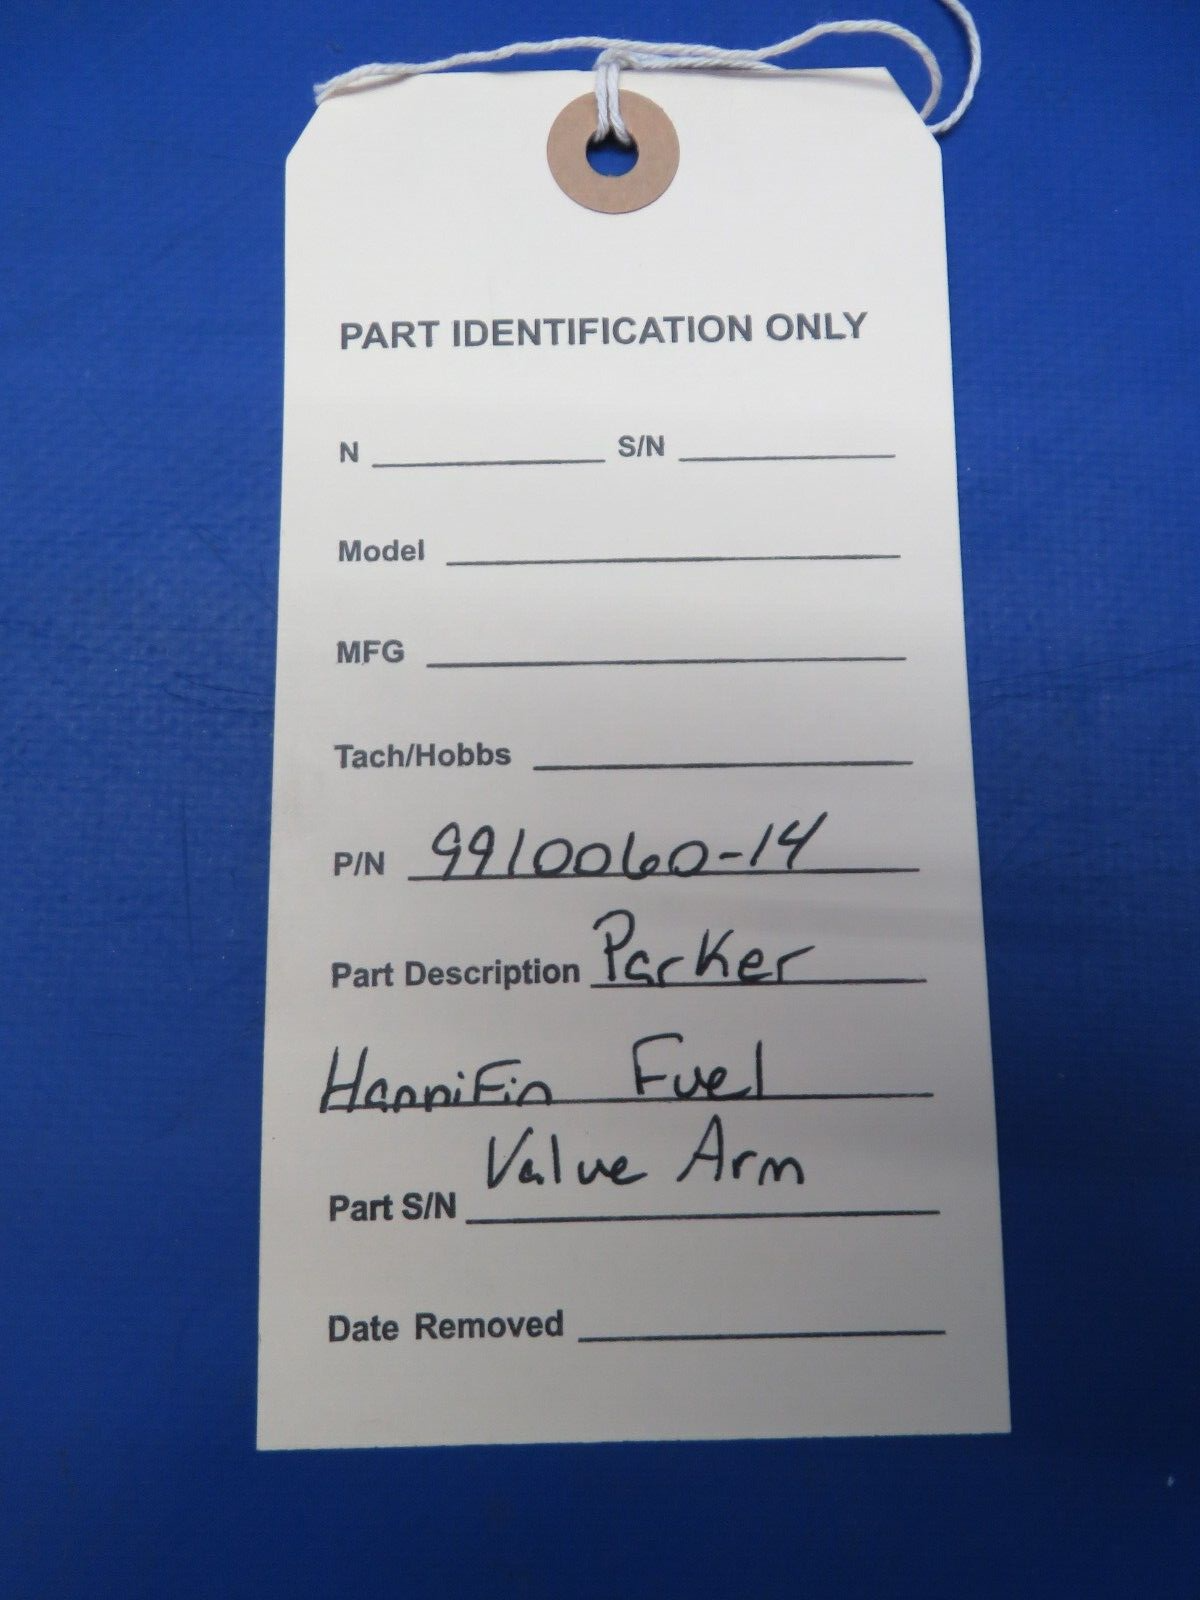 PART IDENTIFICATION ONLY
N S/N
Model
MFG
Tach/Hobbs
P/N 9910060-14
Part Description Parker
Hannifin Fuel
Valve Arm
Part S/N
Date Removed